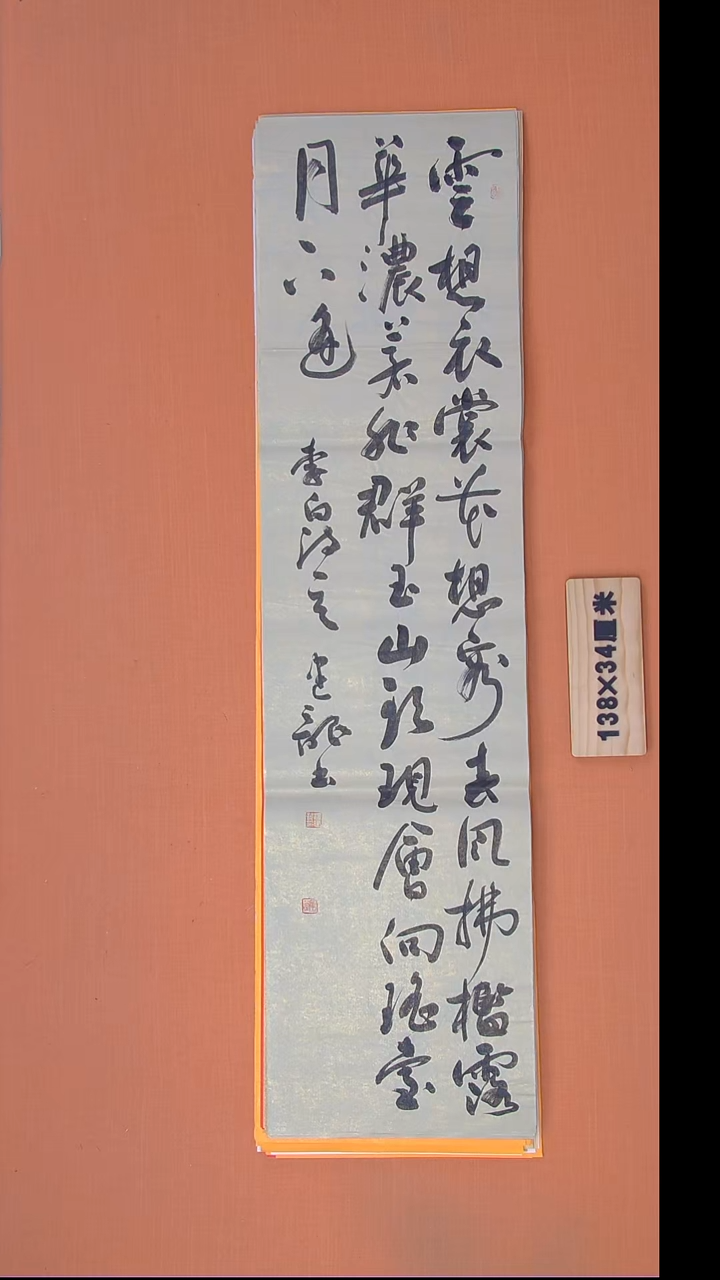 雲想衣裳花想容春风拂檻露
華濃若非群玉山頭現會向瑤臺
月下逢
李白诗一首 龍书
138×34厘米